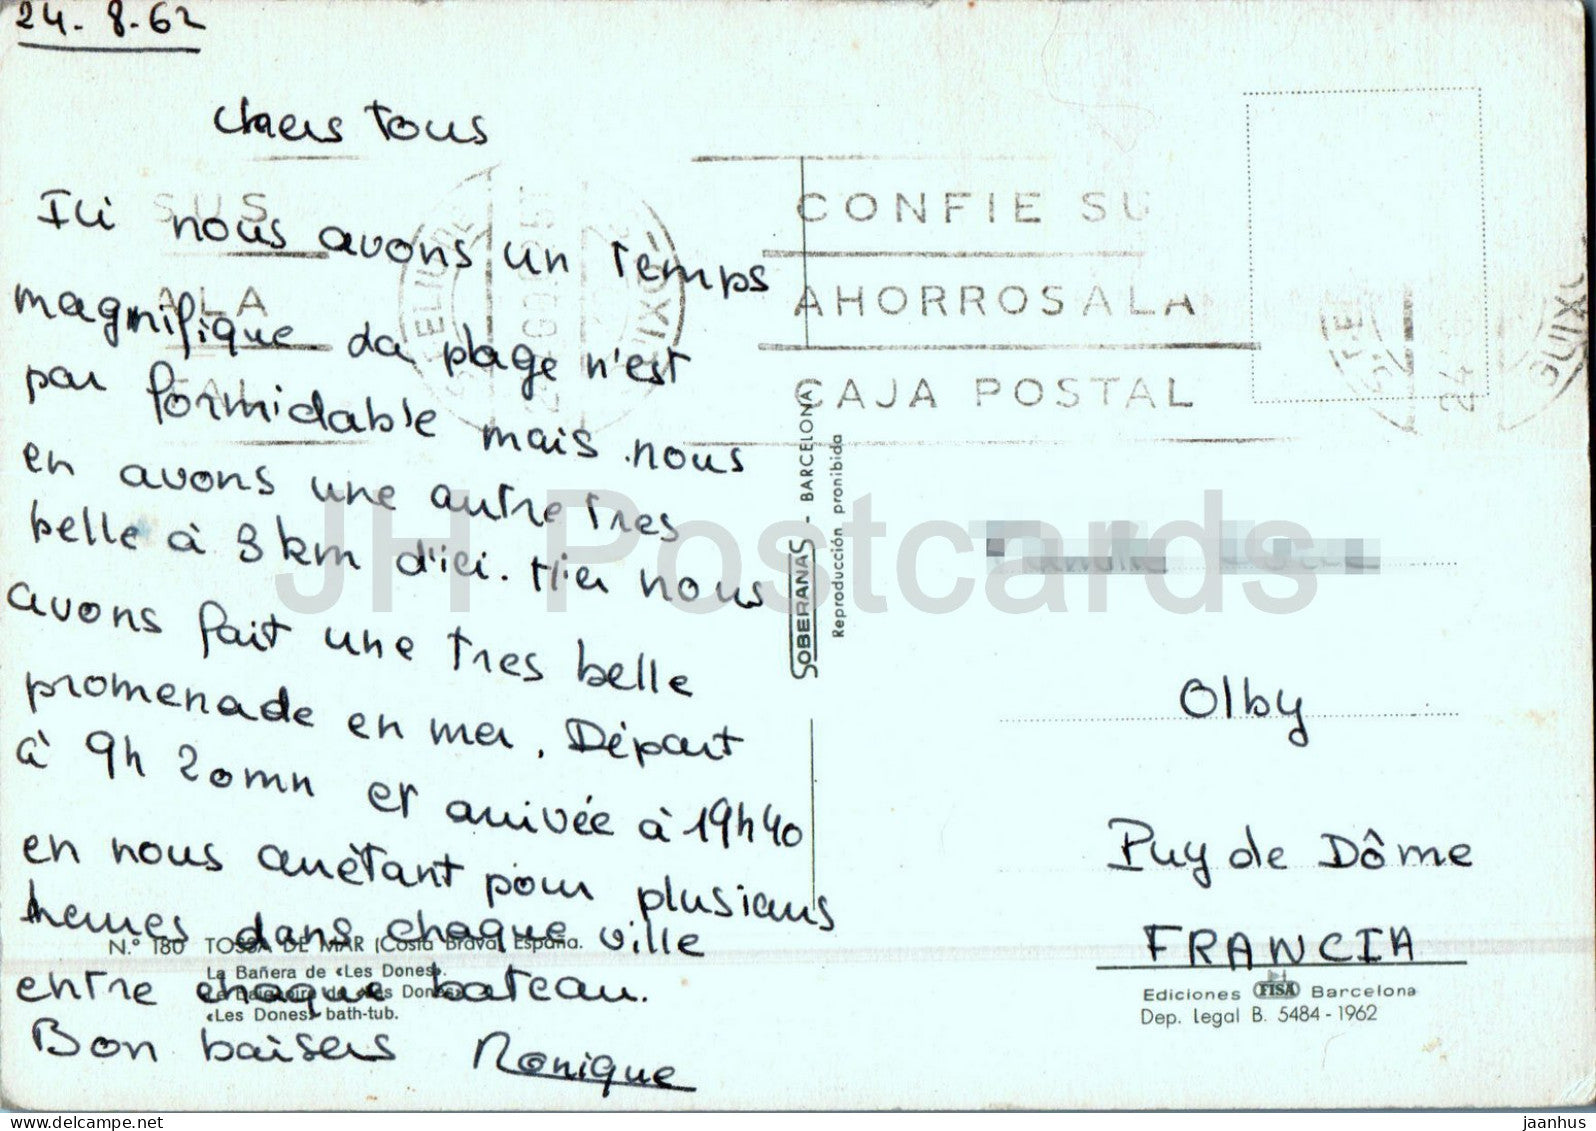 24-8-62
Chers Tous
Ici nous avons un temps
magnifique. La plage n'est
pas formidable mais nous
en avons une autre tres
belle à 3 km d'ici. Hier nous
avons fait une tres belle
promenade en mer. Départ
à 9h 20mn et arrivée à 19h40
en nous arrêtant pour plusieurs
heures dans chaque ville
entre chaque bateau.
Bon baisers Monique
N.° 180 TOSSA DE MAR (Costa Brava) España.
La Bañera de «Les Dones».
La Baignoire de «Les Dones».
«Les Dones» bath-tub.
SUS
A LA
CONFIE SUS
AHORROS A LA
CAJA POSTAL
S.FELIU DE GUIXOLS
SOBERANAS - BARCELONA
Reproducción prohibida
Famille
Olby
Puy de Dôme
FRANCIA
Ediciones FISA Barcelona
Dep. legal B. 5484 - 1962
JH Postcards
jaanhus
www.delcampe.net